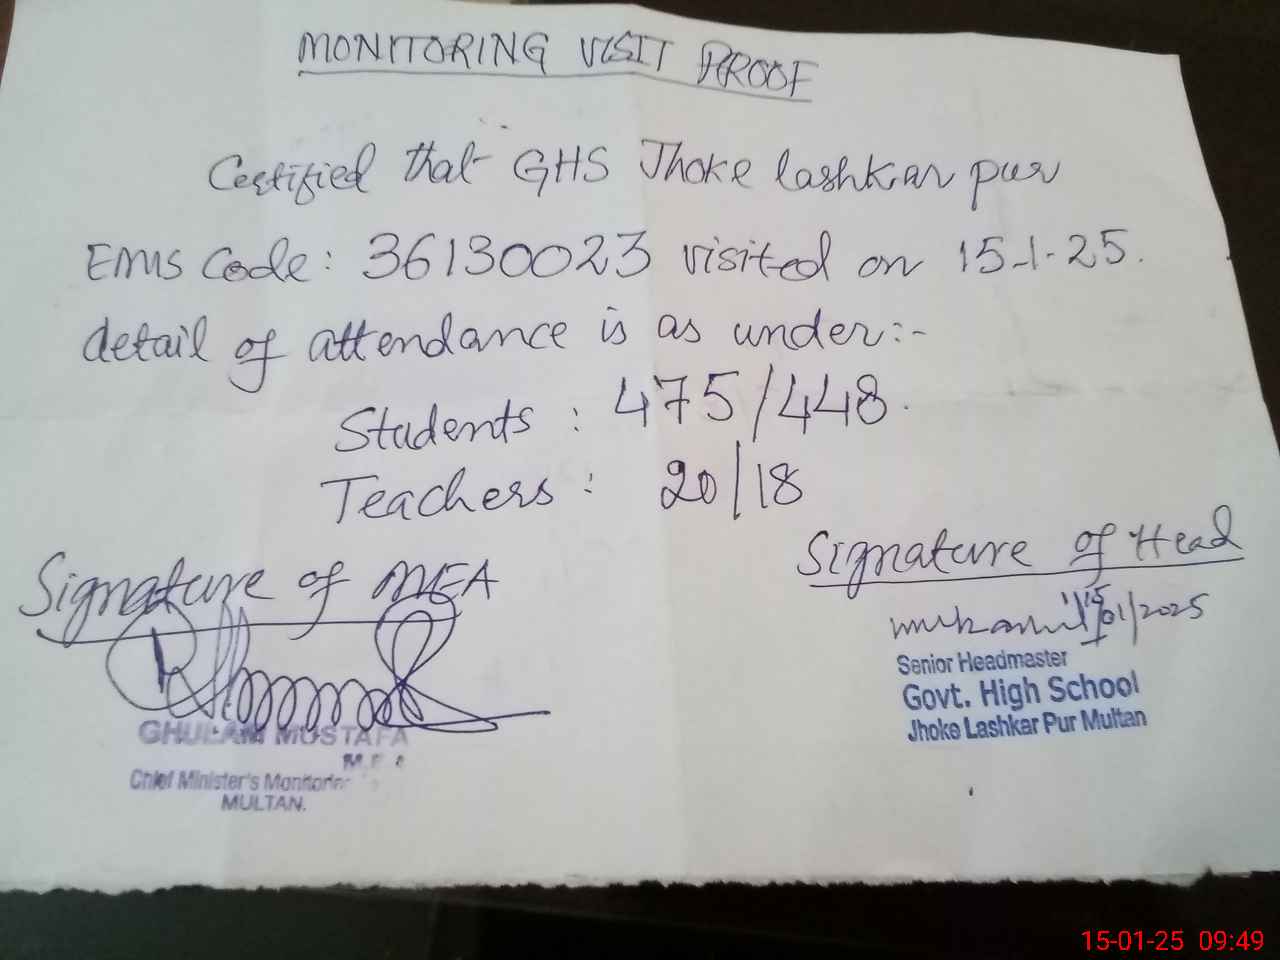 MONITORING VISIT PROOF
Certified that GHS Jhoke lashkar pur
EMIS Code: 36130023 visited on 15-1-25.
detail of attendance is as under:-
Students : 475/448.
Teachers : 20/18
Signature of MEA
Signature of Head
15/01/2025
GHULAM MUSTAFA
Chief Minister's
MULTAN.
Senior Headmaster
Govt. High School
Jhoke Lashkar Pur Multan
15-01-25 09:49